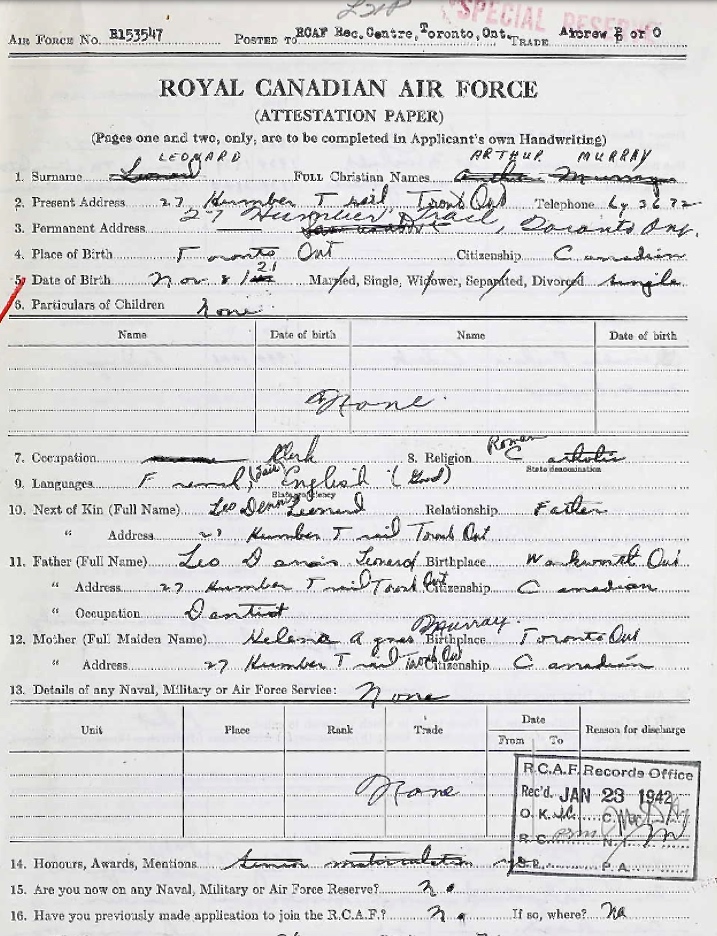 SPECIAL RESERVE
AIR FORCE NO. R153547 POSTED TO RCAF Rec. Centre, Toronto, Ont. TRADE Aircrew P or O
ROYAL CANADIAN AIR FORCE
(ATTESTATION PAPER)
(Pages one and two, only, are to be completed in Applicant's own Handwriting)
LEONARD ARTHUR MURRAY
1. Surname Leonard FULL Christian Names Arthur Murray
2. Present Address 27 Humber Trail Toront Ont Telephone Ly 3672
3. Permanent Address 27 Humber Trail, Toronto Ont.
4. Place of Birth Toronto Ont Citizenship Canadian
5. Date of Birth Nov 8/21 Married, Single, Widower, Separated, Divorced single
6. Particulars of Children None
Name Date of birth Name Date of birth
None
7. Occupation Clerk 8. Religion Roman Catholic
State denomination
9. Languages French (Fair) English (Good)
State proficiency
10. Next of Kin (Full Name) Leo Denis Leonard Relationship Father
" Address 27 Humber Trail Toront Ont
11. Father (Full Name) Leo Denis Leonard Birthplace Warkworth Ont
" Address 27 Humber Trail Toront Ont Citizenship Canadian
" Occupation Dentist
12. Mother (Full Maiden Name) Helena Agnes Murray Birthplace Toronto Ont
" Address 27 Humber Trail Toront Ont Citizenship Canadian
13. Details of any Naval, Military or Air Force Service: None
Unit Place Rank Trade Date From To Reason for discharge
None
R.C.A.F. Records Office
Rec'd. JAN 23 1942
O. K. C.
R. C. N.
S. R. P. A.
14. Honours, Awards, Mentions Senior matriculation
15. Are you now on any Naval, Military or Air Force Reserve? No
16. Have you previously made application to join the R.C.A.F.? No If so, where? na